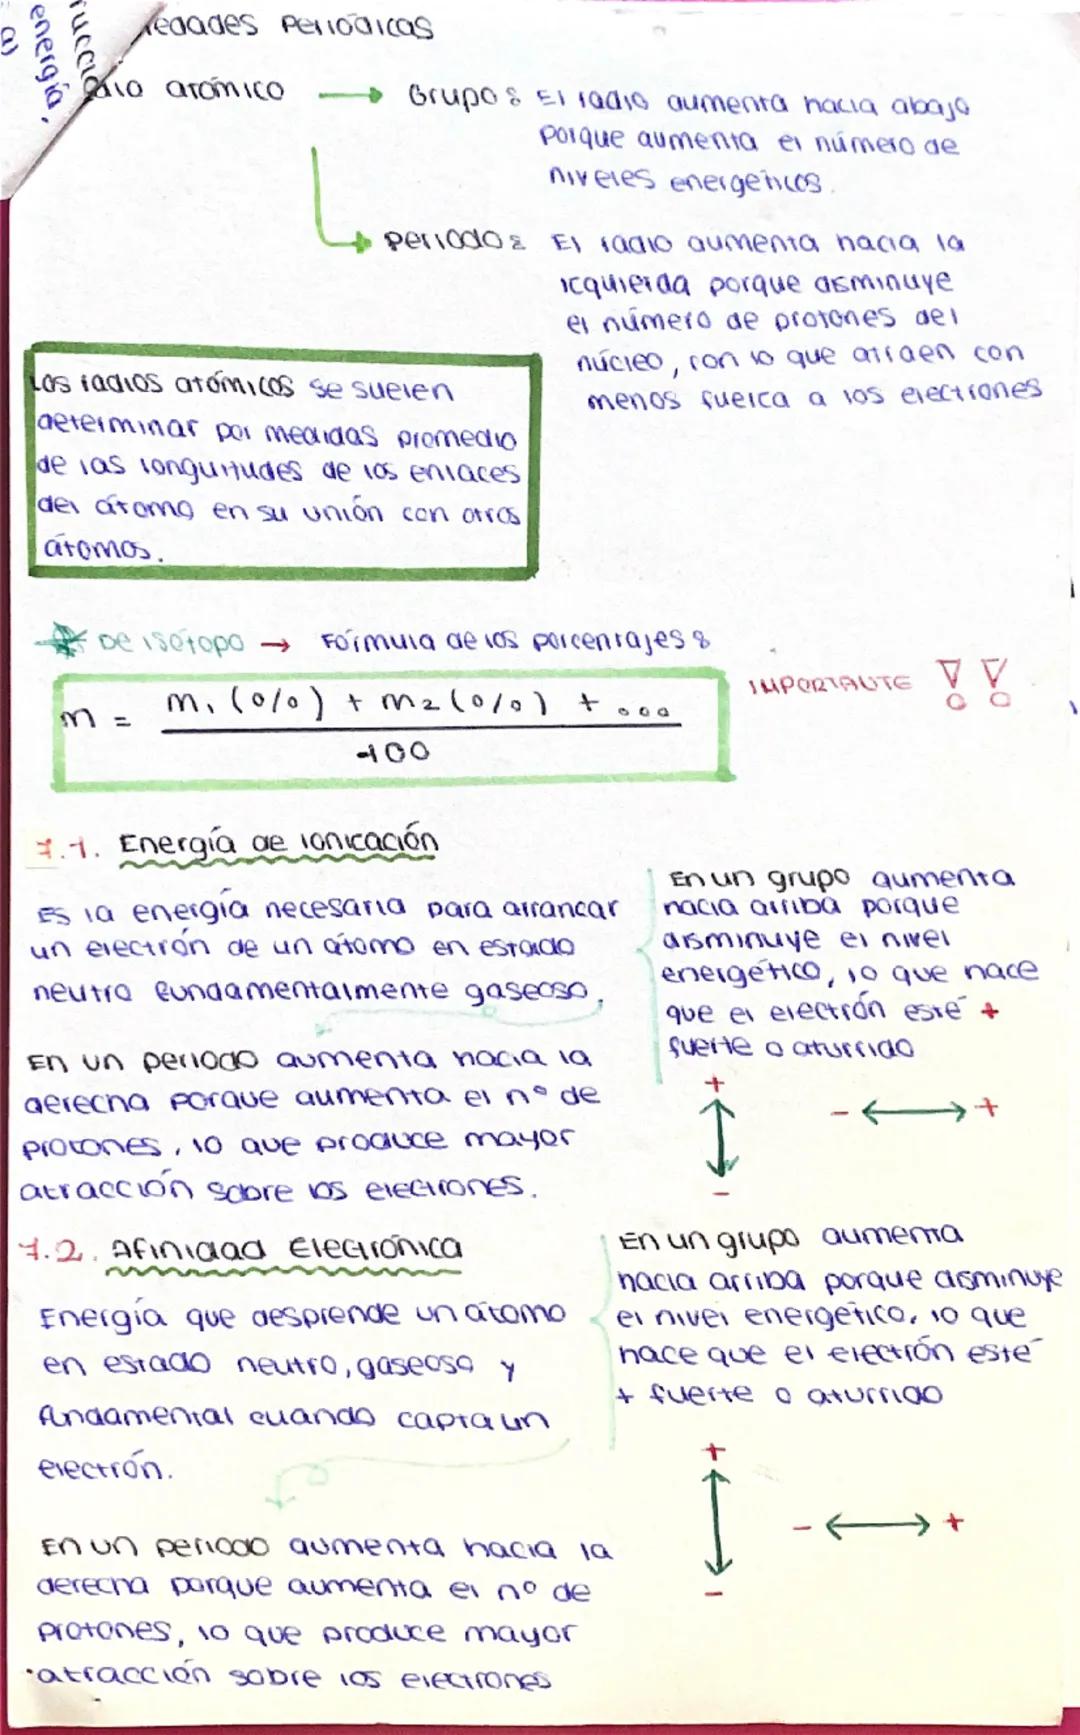 energía.
a)
edades Periódicas
dio atómico → Grupo: El radio aumenta hacia abajo
porque aumenta el número de
niveles energéticos.
periodo: El radio aumenta hacia la
izquierda porque disminuye
el número de protones del
núcleo, con lo que atraen con
menos fuerza a los electrones
Los radios atómicos se suelen
determinar por medidas promedio
de las longuitudes de los enlaces
del átomo en su unión con otros
átomos.
De isótopo → Fórmula de los porcentajes:
m = m₁ (%) + m₂ (%) + ...
100
IMPORTANTE !!
7.1. Energía de ionización
Es la energía necesaria para arrancar
un electrón de un átomo en estado
neutro fundamentalmente gaseoso.
En un grupo aumenta
hacia arriba porque
disminuye el nivel
energético, lo que hace
que el electrón esté +
fuerte o aturrido
En un periodo aumenta hacia la
derecha porque aumenta el nº de
protones, lo que produce mayor
atracción sobre los electrones.
+
- ↔ +
-
7.2. Afinidad Electrónica
Energía que desprende un átomo
en estado neutro, gaseoso y
fundamental cuando capta un
electrón.
En un grupo aumenta
hacia arriba porque disminuye
el nivel energético, lo que
hace que el electrón esté
+ fuerte o aturrido
+
- ↔ +
-
En un periodo aumenta hacia la
derecha porque aumenta el nº de
protones, lo que produce mayor
atracción sobre los electrones